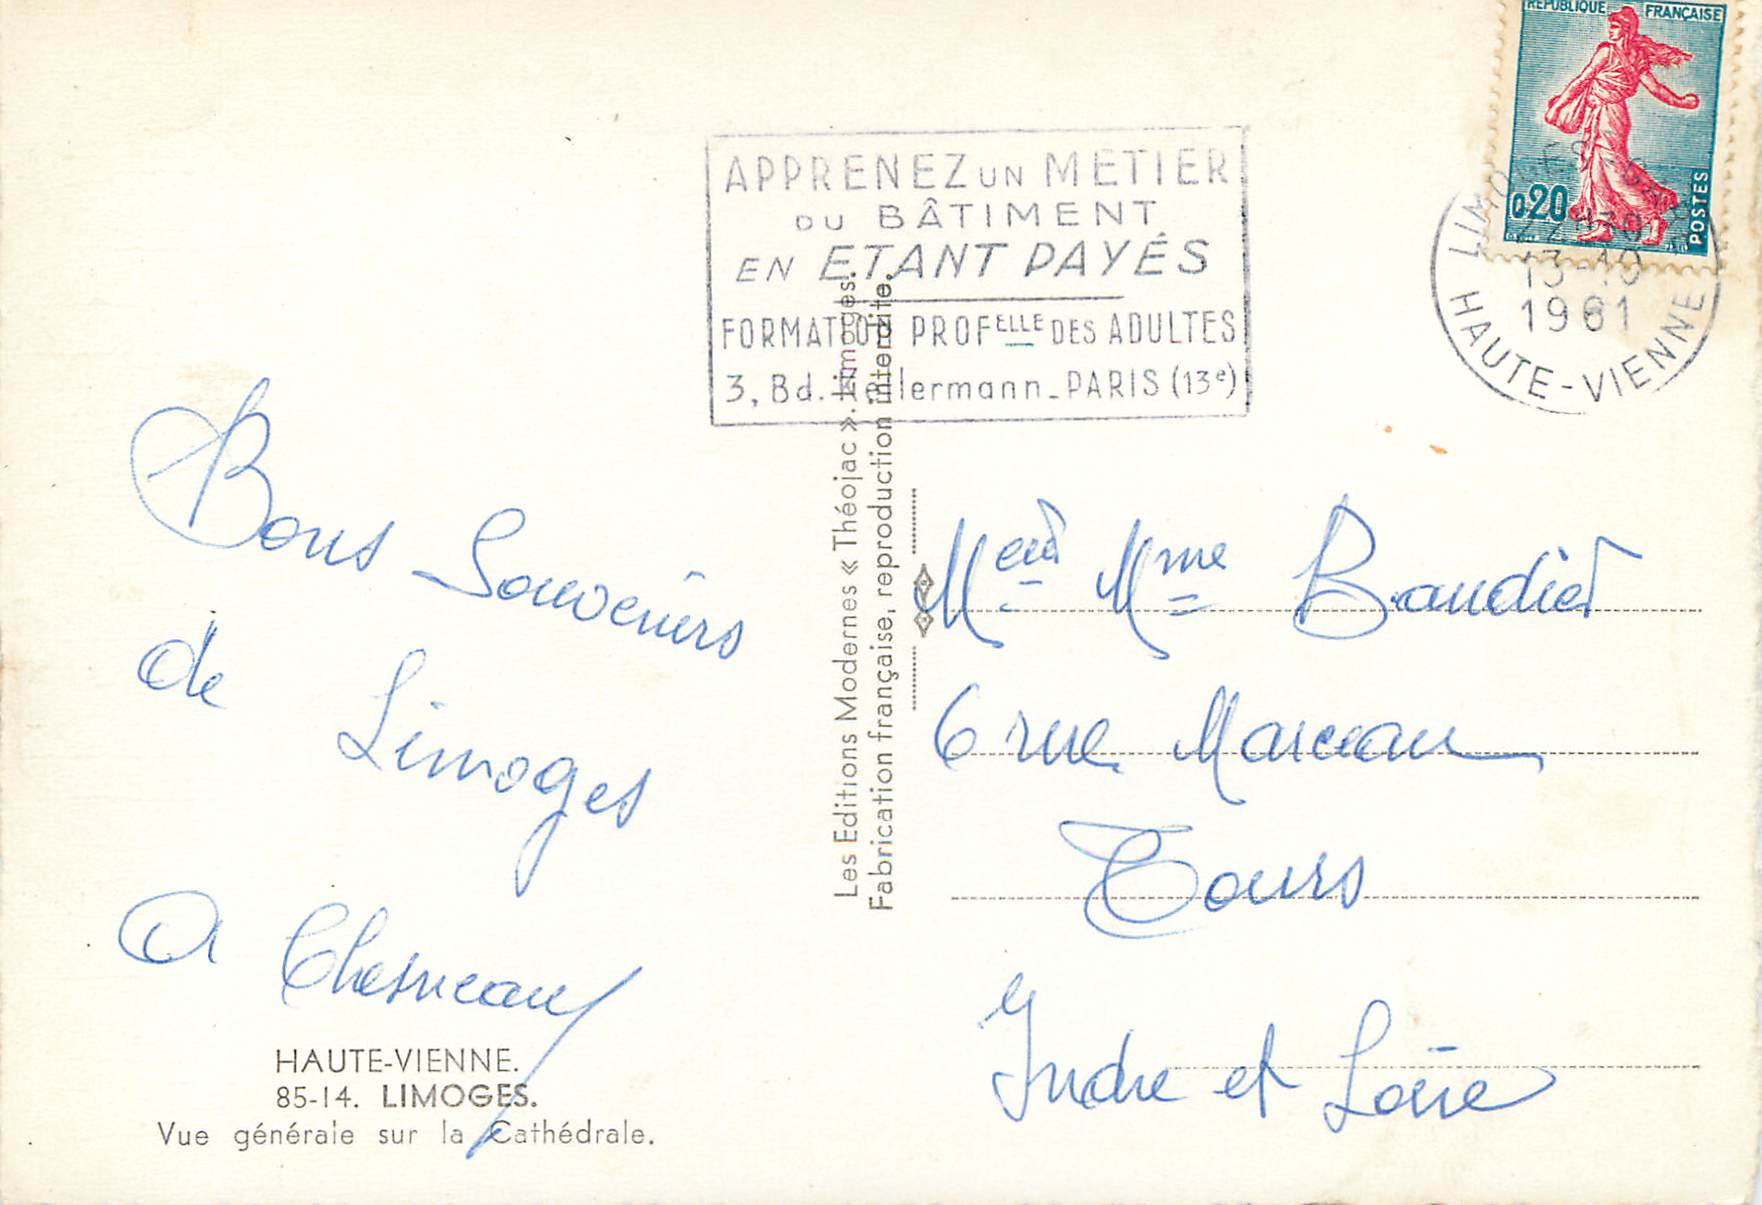 RÉPUBLIQUE FRANÇAISE
0,20
POSTES
APPRENEZ UN METIER
DU BÂTIMENT
EN ETANT PAYÉS
FORMATION PROFELLE DES ADULTES
3, Bd. Kellermann - PARIS (13e)
13-10
1961
HAUTE-VIENNE
Bons Souvenirs
de Limoges
A Chesneau
HAUTE-VIENNE.
85-14. LIMOGES.
Vue générale sur la Cathédrale.
Les Editions Modernes « Théojac ». Limoges.
Fabrication française, reproduction interdite.
M et Mme Baudier
6 rue Marceau
Tours
Indre et Loire